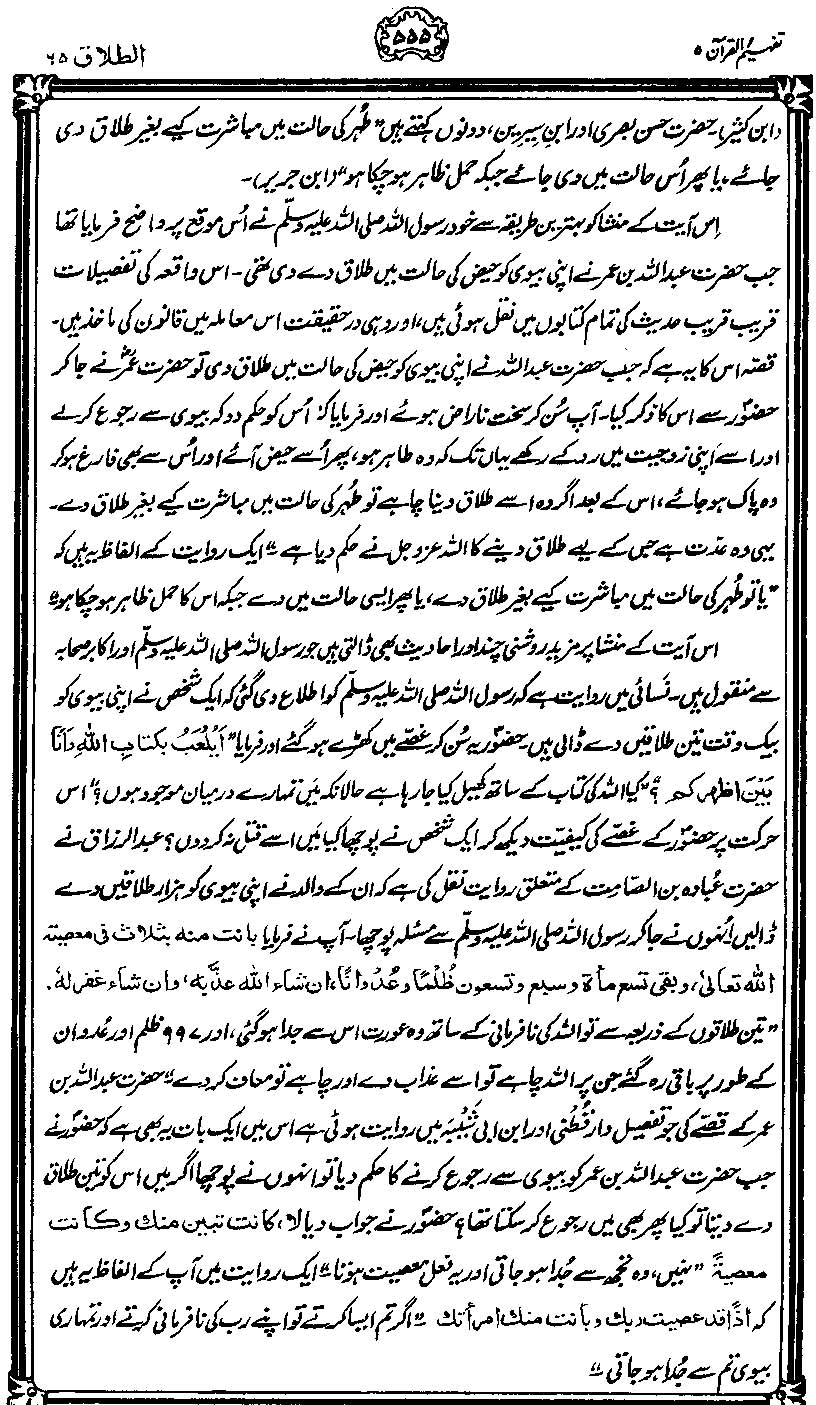 تفہیم القرآن ۵
۵۵۵
الطلاق ۶۵
(ابن کثیر)۔ حضرت حسن بصری اور ابن سیرین، دونوں کہتے ہیں "طُہر کی حالت میں مباشرت کیے بغیر طلاق دی
جائے، یا پھر اُس حالت میں دی جائے جبکہ حمل ظاہر ہو چکا ہو" (ابن جریر)۔
اِس آیت کے منشا کو بہترین طریقہ سے خود رسول اللہ صلی اللہ علیہ وسلّم نے اُس موقع پر واضح فرمایا تھا
جب حضرت عبداللہ بن عمر نے اپنی بیوی کو حیض کی حالت میں طلاق دے دی تھی۔ اس واقعہ کی تفصیلات
قریب قریب حدیث کی تمام کتابوں میں نقل ہوئی ہیں، اور وہی درحقیقت اس معاملہ میں قانون کی ماخذ ہیں۔
قصّہ اس کا یہ ہے کہ جب حضرت عبداللہ نے اپنی بیوی کو حیض کی حالت میں طلاق دی تو حضرت عمرؓ نے جا کر
حضورؐ سے اس کا ذکر کیا۔ آپ سُن کر سخت ناراض ہوئے اور فرمایا کہ "اُس کو حکم دو کہ بیوی سے رجوع کر لے
اور اسے اپنی زوجیت میں روکے رکھے یہاں تک کہ وہ طاہر ہو، پھر اُسے حیض آئے اور اُس سے بھی فارغ ہو کر
وہ پاک ہو جائے، اس کے بعد اگر وہ اسے طلاق دینا چاہے تو طُہر کی حالت میں مباشرت کیے بغیر طلاق دے۔
یہی وہ عدّت ہے جس کے لیے طلاق دینے کا اللہ عزوجل نے حکم دیا ہے"۔ ایک روایت کے الفاظ یہ ہیں کہ
"یا تو طُہر کی حالت میں مباشرت کیے بغیر طلاق دے، یا پھر ایسی حالت میں دے جبکہ اس کا حمل ظاہر ہو چکا ہو"۔
اس آیت کے منشا پر مزید روشنی چند اور احادیث بھی ڈالتی ہیں جو رسول اللہ صلی اللہ علیہ وسلّم اور اکابر صحابہ
سے منقول ہیں۔ نَسائی میں روایت ہے کہ رسول اللہ صلی اللہ علیہ وسلّم کو اطلاع دی گئی کہ ایک شخص نے اپنی بیوی کو
بیک وقت تین طلاقیں دے ڈالی ہیں۔ حضورؐ یہ سُن کر غصے میں کھڑے ہو گئے اور فرمایا "اَیُلْعَبُ بکتابِ اللہِ وَاَنَا
بَیْنَ اظہرکم ؟" "کیا اللہ کی کتاب کے ساتھ کھیل کیا جا رہا ہے حالانکہ مَیں تمہارے درمیان موجود ہوں؟" اس
حرکت پر حضورؐ کے غصّے کی کیفیت دیکھ کر ایک شخص نے پوچھا کیا مَیں اسے قتل نہ کر دوں؟ عبدالرزاق نے
حضرت عُبادہ بن الصّامِت کے متعلق روایت نقل کی ہے کہ ان کے والد نے اپنی بیوی کو ہزار طلاقیں دے
ڈالیں اُنہوں نے جا کر رسول اللہ صلی اللہ علیہ وسلّم سے مسئلہ پوچھا۔ آپ نے فرمایا بانت منہ بثلاث فی معصیۃ
اللہ تعالیٰ، وبقی تسع مأۃ وسبع وتسعون ظُلْمًا وعُدْوانًا، ان شاء اللہ عذّبہ، وان شاء غفر لہٗ۔
"تین طلاقوں کے ذریعہ سے تو اللہ کی نافرمانی کے ساتھ وہ عورت اس سے جدا ہو گئی، اور ۹۹۷ ظلم اور عُدوان
کے طور پر باقی رہ گئے جن پر اللہ چاہے تو اسے عذاب دے اور چاہے تو معاف کر دے"۔ حضرت عبداللہ بن
عمر کے قصّے کی جو تفصیل دارقُطنی اور ابن ابی شَیْبَہ میں روایت ہوئی ہے اس میں ایک بات یہ بھی ہے کہ حضورؐ نے
جب حضرت عبداللہ بن عمر کو بیوی سے رجوع کرنے کا حکم دیا تو انہوں نے پوچھا اگر میں اس کو تین طلاق
دے دیتا تو کیا پھر بھی میں رجوع کر سکتا تھا؟ حضورؐ نے جواب دیا لا، کانت تبین منک وکانت
معصیۃً "نہیں، وہ تجھ سے جُدا ہو جاتی اور یہ فعل معصیت ہوتا"۔ ایک روایت میں آپ کے الفاظ یہ ہیں
کہ اذًا قد عصیت ربک وبانت منک امرأتک "اگر تم ایسا کرتے تو اپنے رب کی نافرمانی کرتے اور تمہاری
بیوی تم سے جُدا ہو جاتی"۔